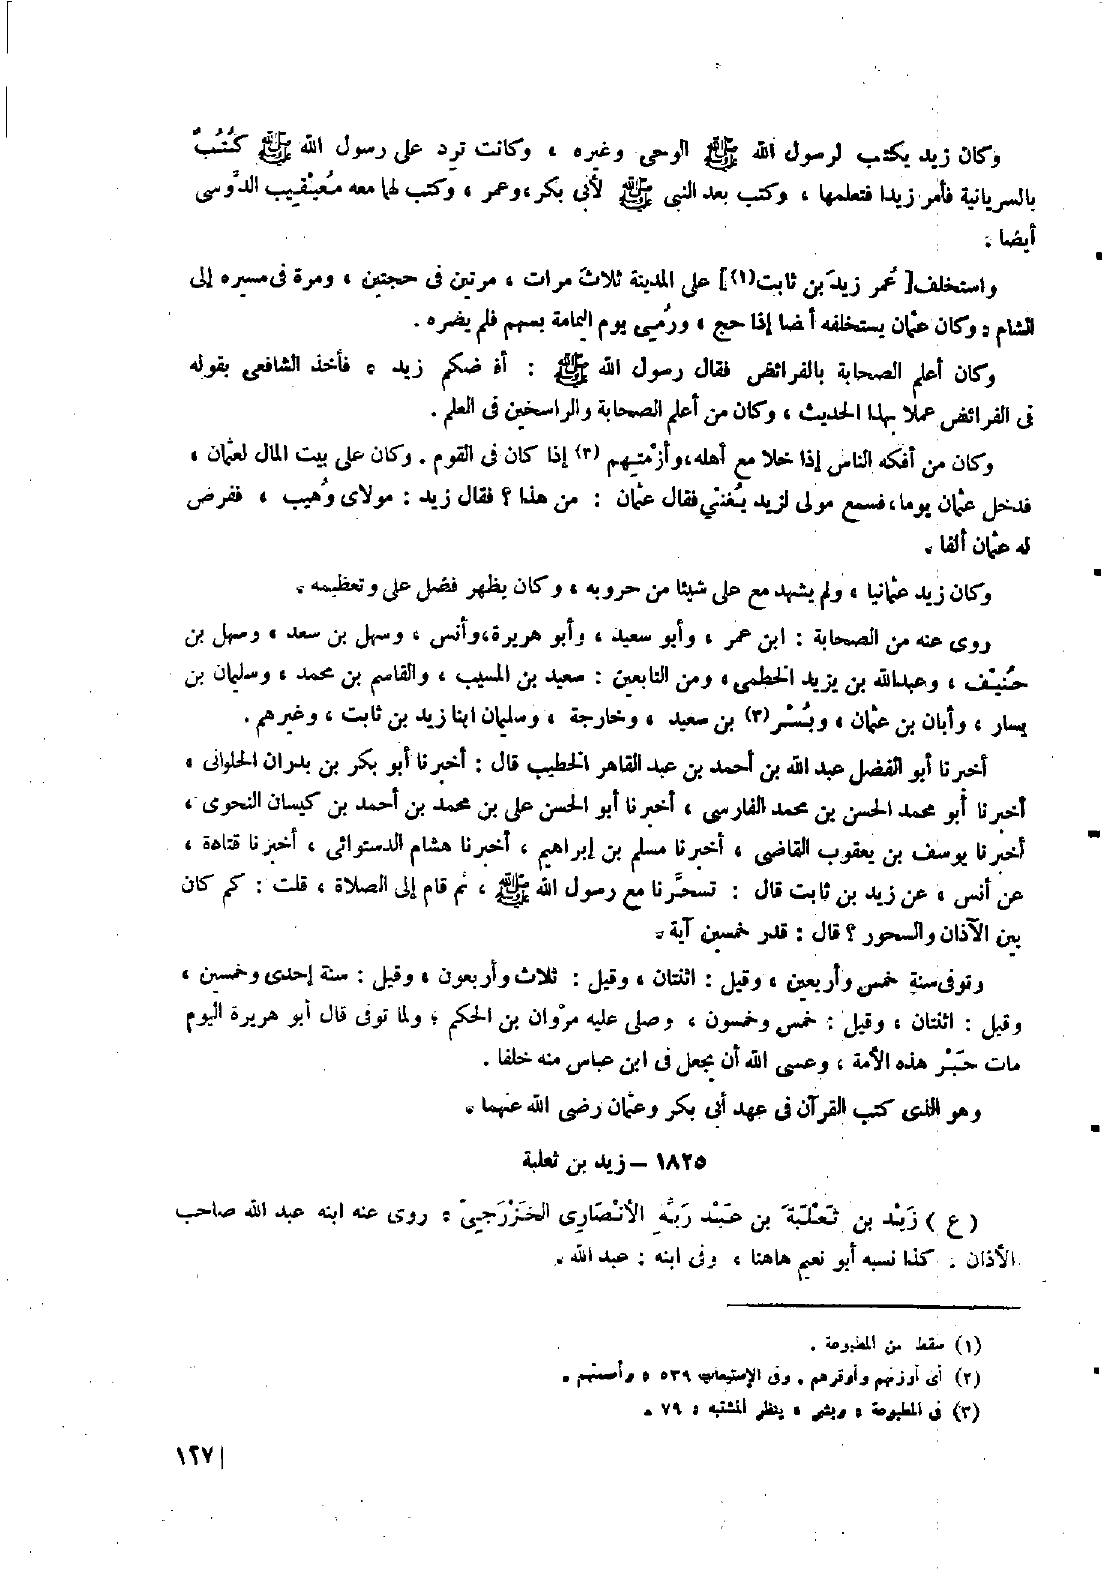 وكان زيد يكتب لرسول الله ﷺ الوحى وغيره ، وكانت ترد على رسول الله ﷺ كُتُبٌ
بالسريانية فأمر زيدا فتعلمها ، وكتب بعد النبى ﷺ لأبى بكر ، وعمر ، وكتب لهما معه مُعَيْقِيب الدَّوسى
أيضا .
واستخلف [ عُمر زيدَ بن ثابت (١) ] على المدينة ثلاثَ مرات ، مرتين فى حجتين ، ومرة فى مسيره إلى
الشام ؛ وكان عثمان يستخلفه أيضا إذا حج ، ورُمِىَ يوم اليمامة بسهم فلم يضره .
وكان أعلم الصحابة بالفرائض فقال رسول الله ﷺ : أفرضكم زيد ، فأخذ الشافعى بقوله
فى الفرائض عملا بهذا الحديث ، وكان من أعلم الصحابة والراسخين فى العلم .
وكان من أفكه الناس إذا خلا مع أهله ، وأزْمَتِهِم (٢) إذا كان فى القوم . وكان على بيت المال لعثمان ،
فدخل عثمان يوما ، فسمع مولى لزيد يُغَنِّى فقال عثمان : من هذا ؟ فقال زيد : مولاى وُهَيب ، ففرض
له عثمان ألفا .
وكان زيد عثمانيا ، ولم يشهد مع على شيئا من حروبه ، وكان يظهر فضل على وتعظيمه .
روى عنه من الصحابة : ابن عمر ، وأبو سعيد ، وأبو هريرة ، وأنس ، وسهل بن سعد ، وسهل بن
حُنَيْف ، وعبد الله بن يزيد الخطمى ، ومن التابعين : سعيد بن المسيب ، والقاسم بن محمد ، وسليمان بن
يسار ، وأبان بن عثمان ، وبُسْر (٣) بن سعيد ، وخارجة ، وسليمان ابنا زيد بن ثابت ، وغيرهم .
أخبرنا أبو الفضل عبد الله بن أحمد بن عبد القاهر الخطيب قال : أخبرنا أبو بكر بن بدران الحلوانى ،
أخبرنا أبو محمد الحسن بن محمد الفارسى ، أخبرنا أبو الحسن على بن محمد بن أحمد بن كيسان النحوى ،
أخبرنا يوسف بن يعقوب القاضى ، أخبرنا مسلم بن إبراهيم ، أخبرنا هشام الدستوائى ، أخبرنا قتادة ،
عن أنس ، عن زيد بن ثابت قال : تسحَّرنا مع رسول الله ﷺ ، ثم قام إلى الصلاة ، قلت : كم كان
بين الآذان والسحور ؟ قال : قدر خمسين آية .
وتوفى سنة خمس وأربعين ، وقيل : اثنتان ، وقيل : ثلاث وأربعون ، وقيل : سنة إحدى وخمسين ،
وقيل : اثنتان ، وقيل : خمس وخمسون ، وصلى عليه مرْوان بن الحكم ؛ ولما توفى قال أبو هريرة اليوم
مات حَبْر هذه الأمة ، وعسى الله أن يجعل فى ابن عباس منه خلفا .
وهو الذى كتب القرآن فى عهد أبى بكر وعثمان رضى الله عنهما .
١٨٢٥ – زيد بن ثعلبة
( ع ) زَيْد بن ثَعْلَبَةَ بن عَبْد رَبِّه الأنْصَارِى الخَزْرَجِىّ . روى عنه ابنه عبد الله صاحب
الأذان . كذا نسبه أبو نعيم هاهنا ، وفى ابنه : عبد الله .
(١) سقط من المطبوعة .
(٢) أى أوزنهم وأوقرهم . وفى الإستيعاب ٥٣٩ ، وأصمتهم .
(٣) فى المطبوعة ، وبشر ، ينظر المشتبه : ٧٩ .
١٢٧